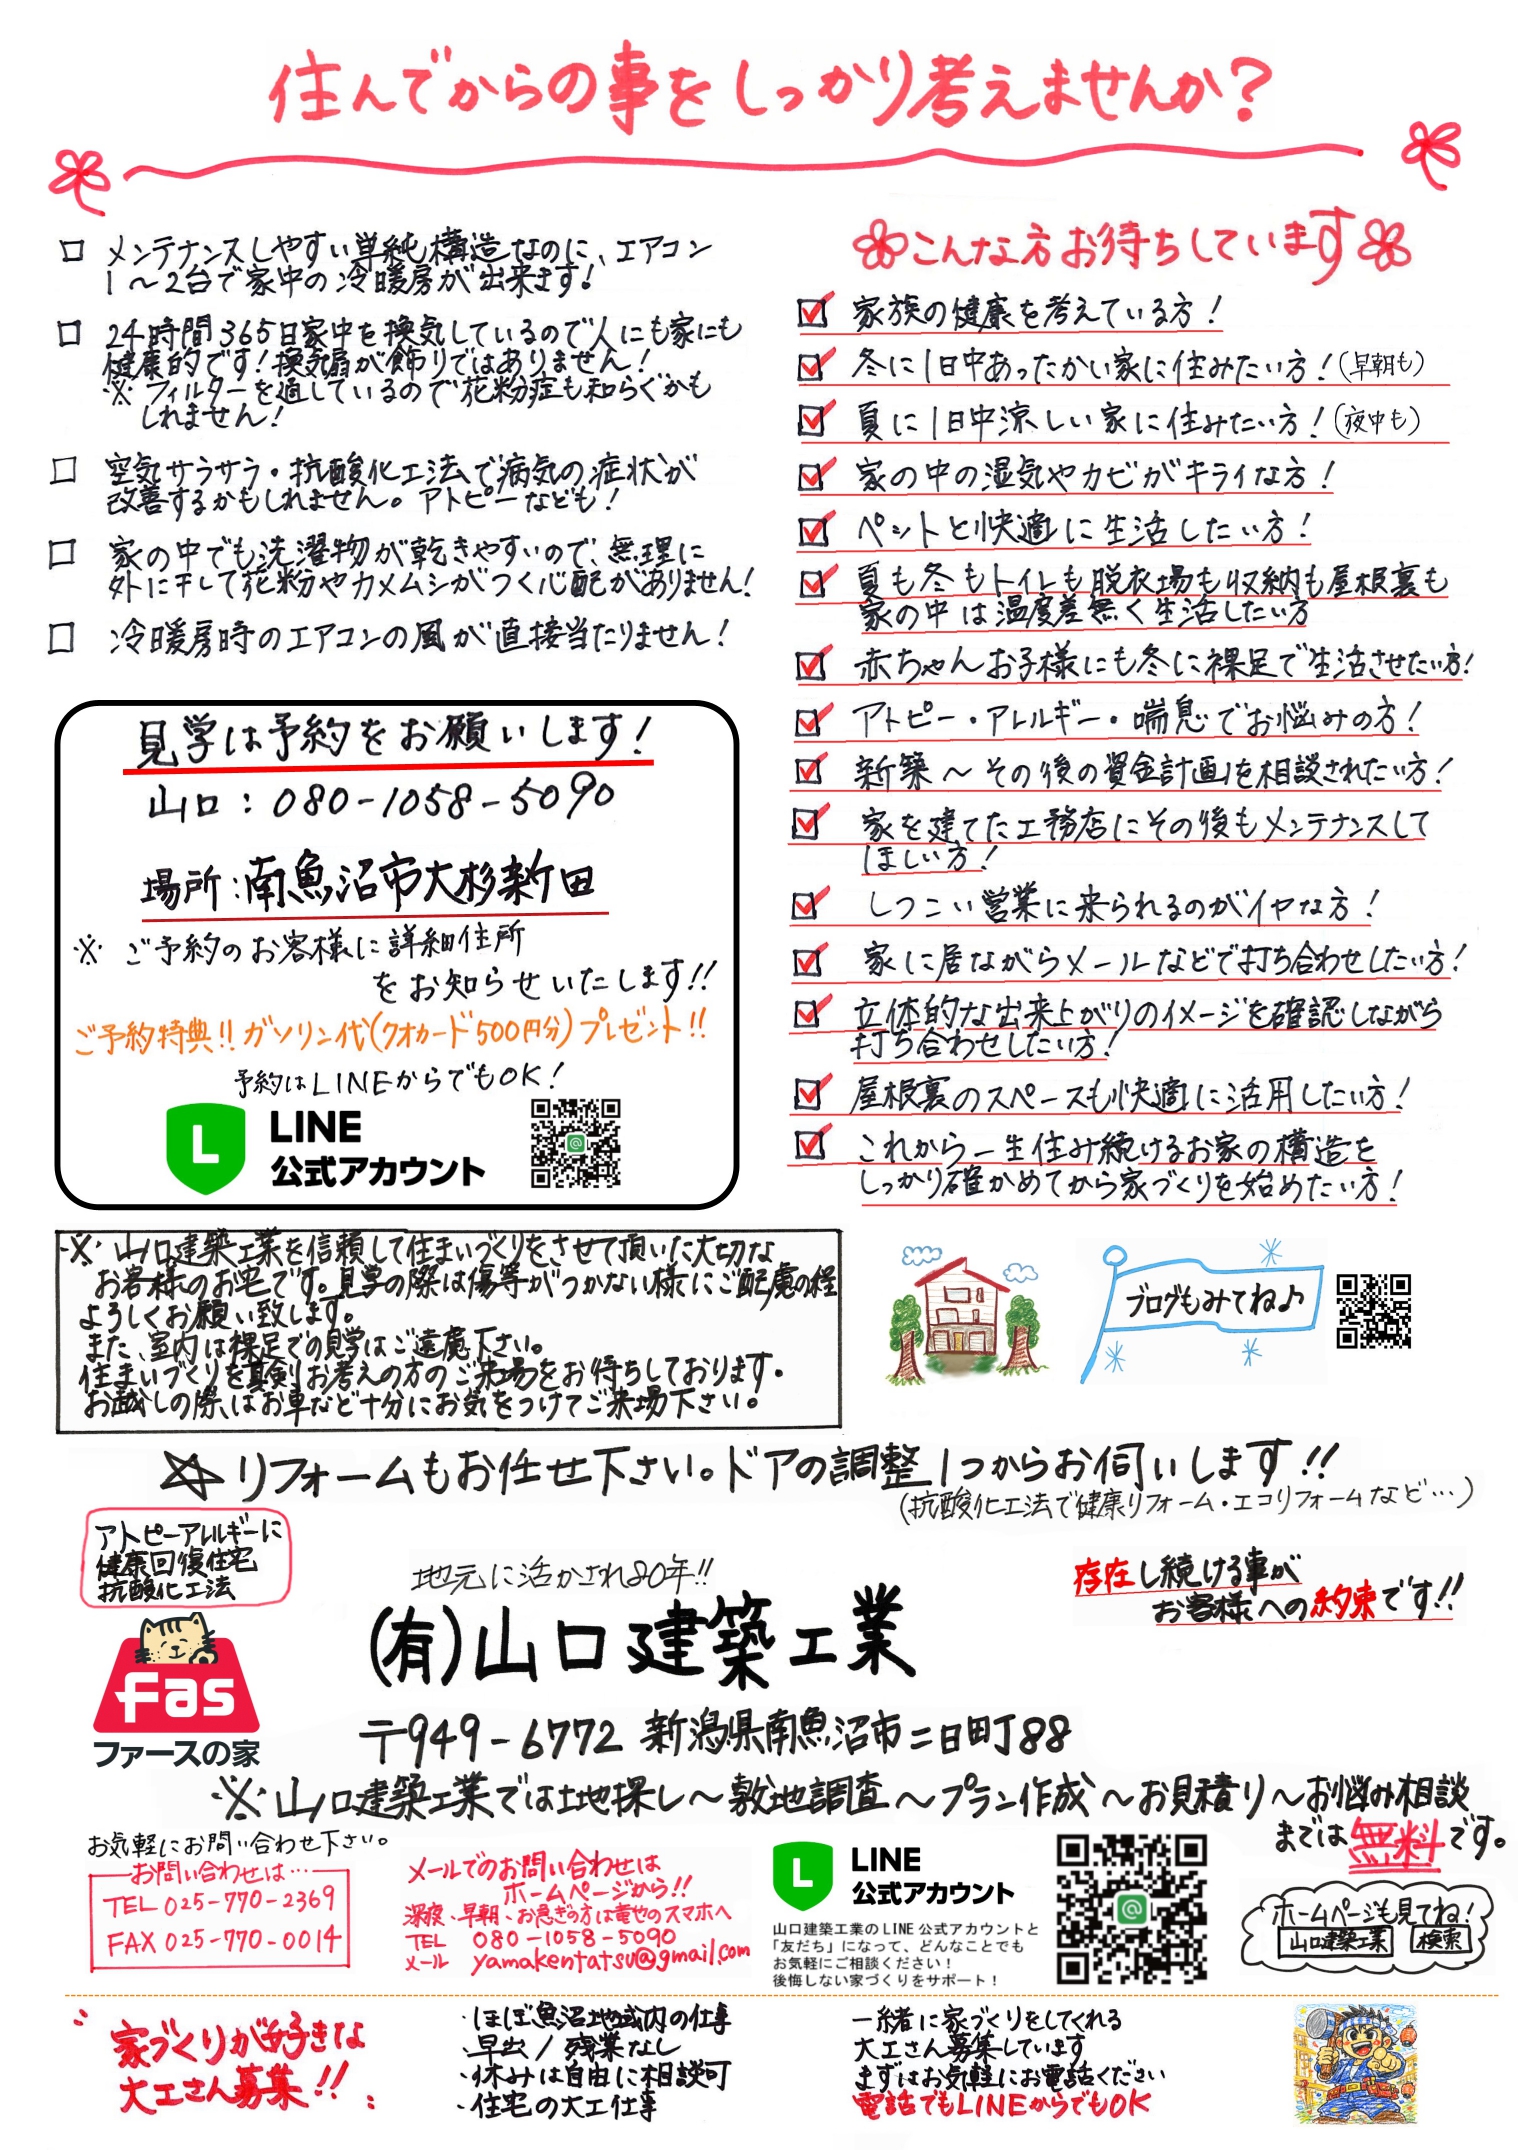 住んでからの事をしっかり考えませんか?
□ メンテナンスしやすい単純構造なのに、エアコン
1～2台で家中の冷暖房が出来ます!
□ 24時間365日家中を換気しているので人にも家にも
健康的です!換気扇が飾りではありません!
※フィルターを通しているので花粉症も和らぐかも
しれません!
□ 空気サラサラ・抗酸化工法で病気の症状が
改善するかもしれません。アトピーなども!
□ 家の中でも洗濯物が乾きやすいので、無理に
外に干して花粉やカメムシがつく心配がありません!
□ 冷暖房時のエアコンの風が直接当たりません!
見学は予約をお願いします!
山口:080-1058-5090
場所:南魚沼市大杉新田
※ ご予約のお客様に詳細住所
をお知らせいたします!!
ご予約特典!!ガソリン代(クオカード500円分)プレゼント!!
予約はLINEからでもOK!
L LINE
公式アカウント
こんな方お待ちしています
☑ 家族の健康を考えている方!
☑ 冬に1日中あったかい家に住みたい方!(早朝も)
☑ 夏に1日中涼しい家に住みたい方!(夜中も)
☑ 家の中の湿気やカビがキライな方!
☑ ペットと快適に生活したい方!
☑ 夏も冬もトイレも脱衣場も収納も屋根裏も
家の中は温度差無く生活したい方
☑ 赤ちゃんお子様にも冬に裸足で生活させたい方!
☑ アトピー・アレルギー・喘息でお悩みの方!
☑ 新築～その後の資金計画を相談されたい方!
☑ 家を建てた工務店にその後もメンテナンスして
ほしい方!
☑ しつこい営業に来られるのがイヤな方!
☑ 家に居ながらメールなどで打ち合わせしたい方!
☑ 立体的な出来上がりのイメージを確認しながら
打ち合わせしたい方!
☑ 屋根裏のスペースも快適に活用したい方!
☑ これから一生住み続けるお家の構造を
しっかり確かめてから家づくりを始めたい方!
※ 山口建築工業を信頼して住まいづくりをさせて頂いた大切な
お客様のお宅です。見学の際は傷等がつかない様にご配慮の程
よろしくお願い致します。
また、室内は裸足での見学はご遠慮下さい。
住まいづくりを真剣お考えの方のご来場をお待ちしております。
お越しの際はお車など十分にお気をつけてご来場下さい。
ブログもみてね♪
☆リフォームもお任せ下さい。ドアの調整1つからお伺いします!!
(抗酸化工法で健康リフォーム・エコリフォームなど…)
アトピーアレルギーに
健康回復住宅
抗酸化工法
Fas
ファースの家
地元に活かされ80年!!
(有)山口建築工業
〒949-6772 新潟県南魚沼市二日町88
存在し続ける事が
お客様への約束です!!
※山口建築工業では土地探し～敷地調査～プラン作成～お見積り～お悩み相談
までは無料です。
お気軽にお問い合わせ下さい。
お問い合わせは…
TEL 025-770-2369
FAX 025-770-0014
メールでのお問い合わせは
ホームページから!!
深夜、早朝、お急ぎの方は竜也のスマホへ
TEL 080-1058-5090
メール yamakentatsu@gmail.com
L LINE
公式アカウント
山口建築工業のLINE公式アカウントと
「友だち」になって、どんなことでも
お気軽にご相談ください!
後悔しない家づくりをサポート!
ホームページも見てね!
山口建築工業 検索
家づくりが好きな
大工さん募集!!
・ほぼ魚沼地域内の仕事
・早出/残業なし
・休みは自由に相談可
・住宅の大工仕事
一緒に家づくりをしてくれる
大工さん募集しています
まずはお気軽にお電話ください
電話でもLINEからでもOK